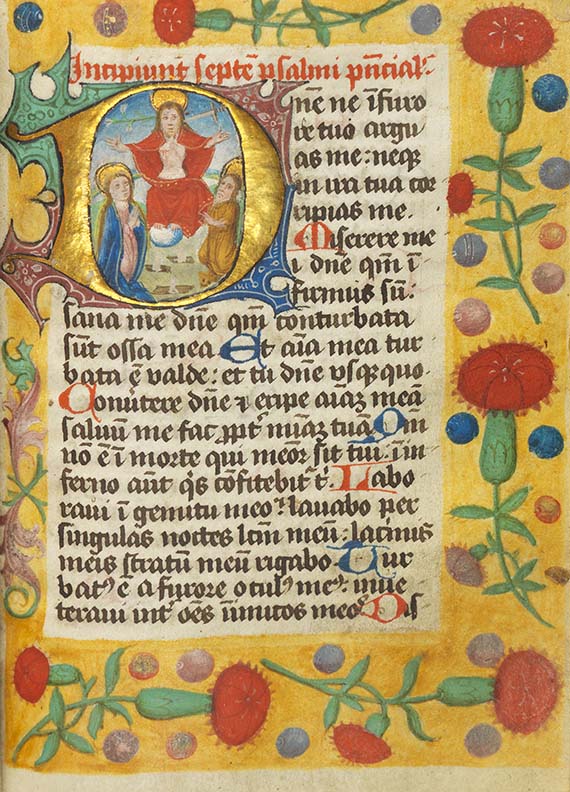 Incipiunt septē psalmi pn̄cial'
Dn̄e ne ī furo
re tuo argu
as me: neq
in ira tua cor
ripias me.
Miserere me
i dn̄e qm̄ ī
firmus sū:
sana me dn̄e qm̄ conturbata
sūt ossa mea Et aīa mea tur
bata ē valde: et tu dn̄e vsqꝫ quo.
Conūtere dn̄e ⁊ eripe aīaꝫ meā
saluum me fac ꝓpt' mīaꝫ tuā Qm̄
nō ē ī morte qui meor sit tui: ī in
ferno aūt q̄s cōfitebit' t' Labo
raui ī gemitu meo: lauabo per
singulas noctes lcm̄ meū: lacrimis
meis stratū meū rigabo. Tur
bat' ē a furore ocul' me': inue
teraui int' oēs īimicos meos Dis